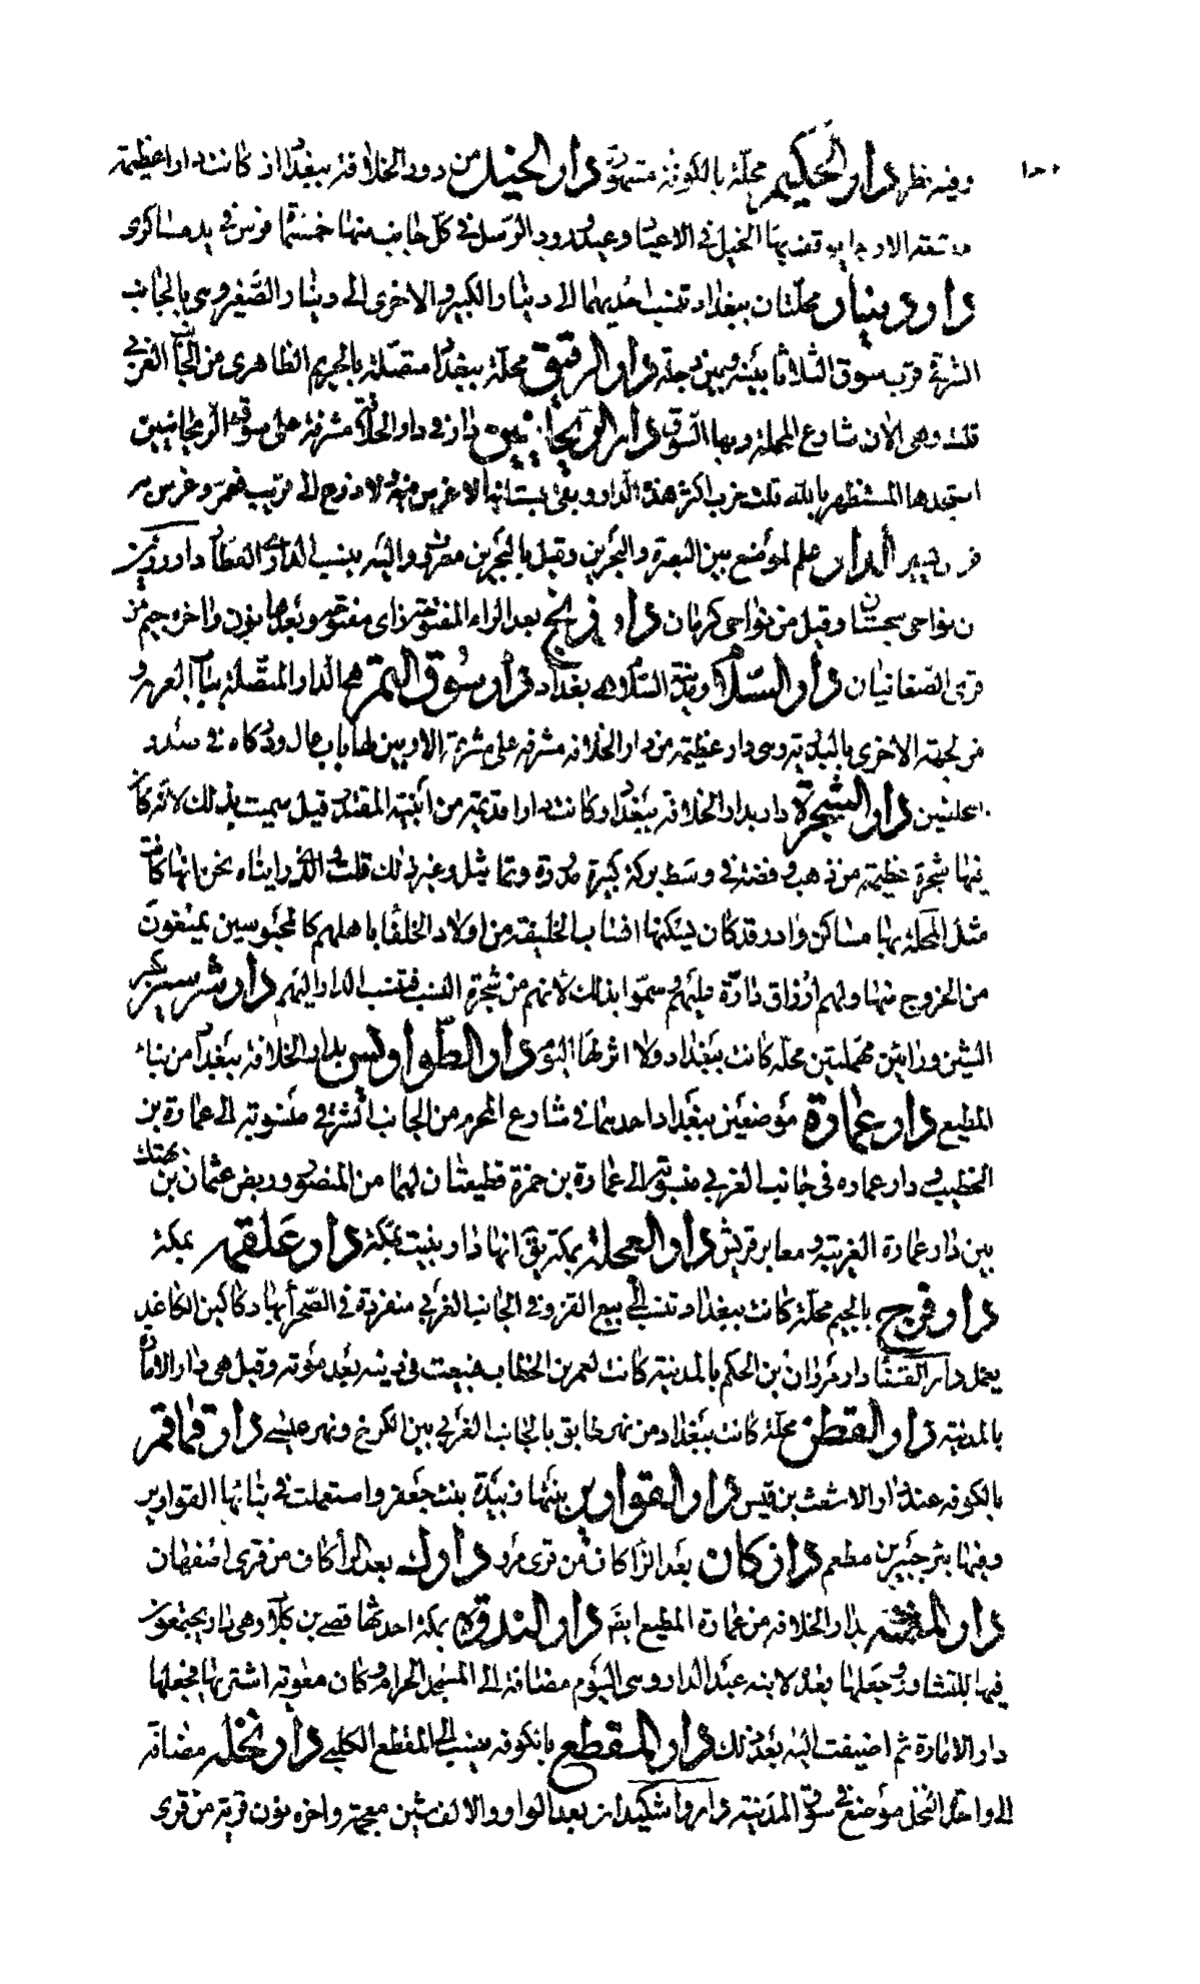 وفيه نظر دار الحكيم محلة بالكوفة مشهورة دار الخيل من دور الخلافة ببغداد كانت دارا عظيمة
الارجا يوقف بها الخيل في الاعياد وعند ورود الرسل في كل جانب منها خمسمائة فرس في يد شاكرى
دار دينار محلتان ببغداد تنسب احديهما الى دينار الكبير والاخرى الى دينار الصغير وهى بالجانب
الشرقي قرب سوق الثلاثا بينه وبين دجلة دار الرقيق محلة ببغداد متصلة بالحريم الطاهرى من الجانب الغربي
قلت وهى الان شارع المحلة وبها السوق دار الريحانيين دار في دار الخلافة مشرفة على سوق الريحانيين
استجدها المستظهر بالله قلت خرب اكثر هذه الدار وبقى بستانها لا غرس فيه ولا زرع الى قريب فعمر وغرس
الدار علم لموضع بين البصرة والبحرين وقيل بالبحرين معروف واليه ينسب الدارى العطار دار رزين
من نواحي سجستان وقيل من نواحي كرمان دار زنج بعد الراء المفتوحة زاى مفتوحة وبعدها نون واخره جيم من
قرى الصغانيان دار السلام ومدينة السلام هي بغداد دار سوق التمر هي الدار المتصلة بباب الغربة و
من الجهة الاخرى بالبدرية وهى دار عظيمة من دار الخلافة مشرفة على مشرعة الابريين لها باب عال ودكاه في صدره
اسطنين دار الشجرة دار بدار الخلافة ببغداد وكانت دارا قديمة من ابنية المقتدر قيل سميت بذلك لانه كان
فيها شجرة عظيمة من ذهب وفضة في وسط بركة كبيرة مدورة وتماثيل وغير ذلك قلت والذى رايناه نحن انها كانت
مثل المحلة بها مساكن وادر قد كان يسكنها انساب الخليفة من اولاد الخلفا باهلهم كالمحبوسين يمنعون
من الخروج منها ولهم ارزاق دارة عليهم وسموا بذلك لانهم من شجرة النسب فتنسب الدار اليهم دار شرشير بكسر
الشين ورائين مهملتين محلة كانت ببغداد ولا اثر لها اليوم دار الطواويس بدار الخلافة ببغداد من بناء
المطيع دار عمارة موضعين ببغداد احدهما في شارع المخرم من الجانب الشرقي منسوبة الى عمارة بن
الخطيب ودار عماره في جانب الغربي منسوبة الى عمارة بن حمزة قطيعتان لهما من المنصور وربض عثمان بن نهيك
بين دار عمارة الغربية ومعابر قريش دار العجلة بمكة يق انها دار بنيت بمكة دار علقمه بمكة
دار فرج بالجيم محلة كانت ببغداد تنسب الى بيع القز وفي الجانب الغربي منفردة في الصحرا بها دكاكين الكاغد
يعمل دار القضا دار مروان بن الحكم بالمدينة كانت لعمر بن الخطاب فبيعت في دينه بعد موته وقيل هى دار الامارة
بالمدينة دار القطن محلة كانت ببغداد من نهر طابق بالجانب الغربي بين الكرخ ونهر عيسى دار قماقم
بالكوفه عند دار الاشعث بن قيس دار القوارير بنتها زبيدة بنت جعفر واستعملت في بنائها القوارير
وفيها بئر جبير بن مطعم دارزكان بعد الزا كاف من قرى مرو دارك بعد الرا كاف من قرى اصفهان
دار المثمنه بدار الخلافه من عمارة المطيع ايضا دار الندوة بمكة احدثها قصى بن كلاب وهى دار يجتمعون
فيها للتشاور وجعلها بعده لابنه عبد الدار وهى اليوم مضافة الى المسجد الحرام وكان معوية اشتريها فجعلها
دار الامارة ثم اضيفت اليه بعد ذلك دار المقطع بالكوفه ينسب الى المقطع الكلبى دار نخله مضافة
الى واحدة النخل موضع في سوق المدينة دار واشكيدان بعد الواو والالف شين معجمة واخره نون قرية من قرى